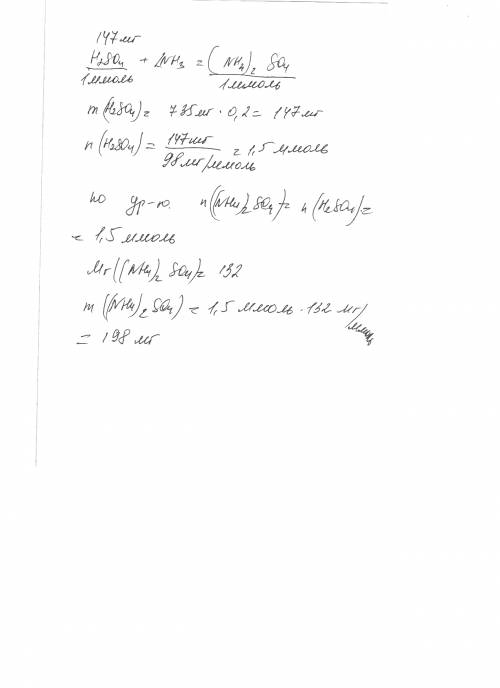 147мг
H₂SO₄ + 2NH₃ = (NH₄)₂ SO₄
1ммоль 1ммоль
m(H₂SO₄)= 735мг · 0,2= 147мг
n(H₂SO₄) = 147мг / 98мг/ммоль = 1,5 ммоль
по ур-ю. n((NH₄)₂SO₄)= n(H₂SO₄)=
= 1,5 ммоль
Mr((NH₄)₂ SO₄)= 132
m((NH₄)₂SO₄) = 1,5 ммоль · 132 мг/ммоль
= 198 мг